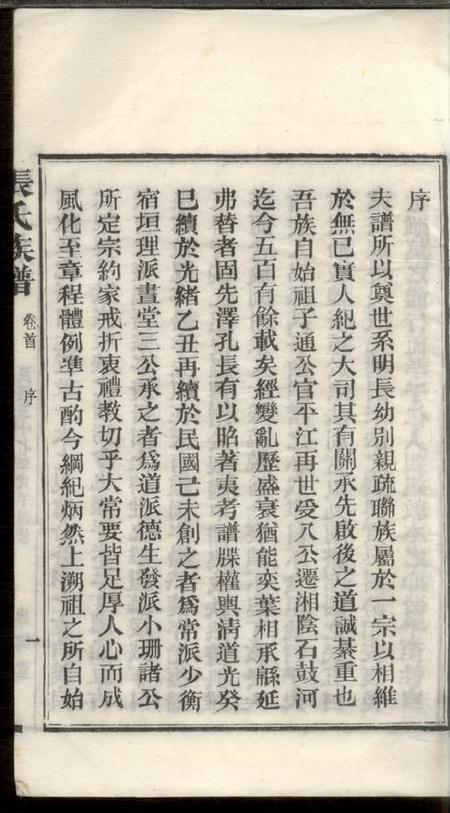 序
夫譜所以奠世系明長幼別親疏聯族屬於一宗以相維
於無已實人紀之大司其有關承先啟後之道誠綦重也
吾族自始祖子通公官平江再世受八公遷湘陰石鼓河
迄今五百有餘載矣經變亂歷盛衰猶能奕葉相承緜延
弗替者固先澤孔長有以昭著夷考譜牒權輿清道光癸
巳續於光緒乙丑再續於民國己未創之者爲常派少衡
宿垣理派晝堂三公承之者爲道派德生發派小珊諸公
所定宗約家戒折衷禮教切乎大常要皆足厚人心而成
風化至章程體例準古酌今綱紀炳然上溯祖之所自始
張氏族譜
卷首
序
一